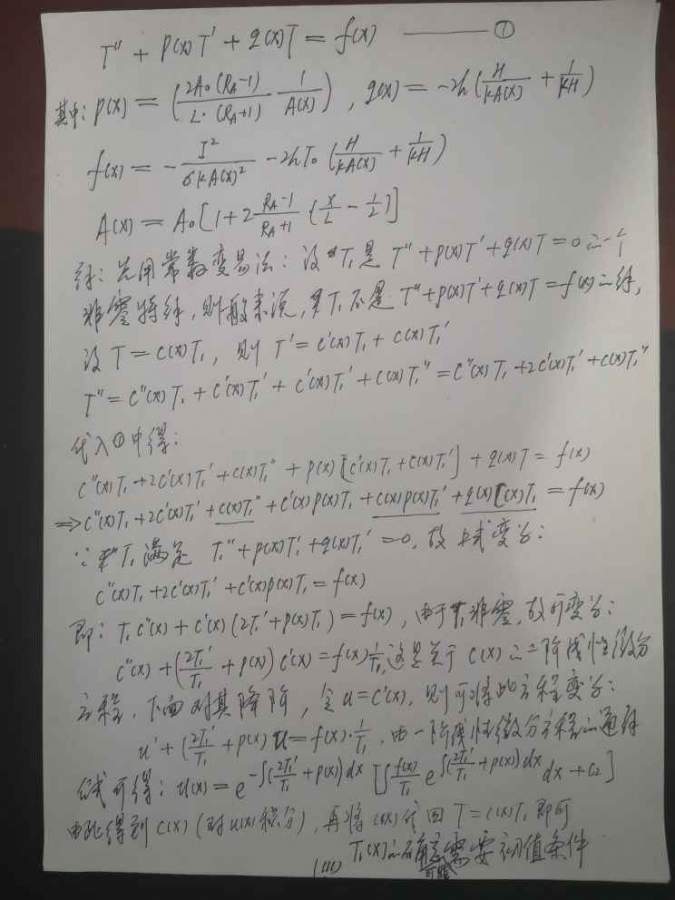 T'' + p(x)T' + q(x)T = f(x) ——— ①
其中: p(x) = (2A₀(R_A-1)/L·(R_A+1) · 1/A(x)), q(x) = -2h(H/kA(x) + 1/kH)
f(x) = - I²/σkA(x)² - 2hT₀(H/kA(x) + 1/kH)
A(x) = A₀[1+2 R_A-1/R_A+1 (x/L - 1/2)]
解: 先用常数变易法: 设 T₁是 T''+p(x)T'+q(x)T=0的一个
非零特解, 则一般来说, T₁不是T''+p(x)T'+q(x)T=f(x)的解,
设 T=C(x)T₁, 则 T'=C'(x)T₁+C(x)T₁'
T''=C''(x)T₁+C'(x)T₁'+C'(x)T₁'+C(x)T₁''=C''(x)T₁+2C'(x)T₁'+C(x)T₁''
代入①中得:
C''(x)T₁+2C'(x)T₁'+C(x)T₁''+p(x)[C'(x)T₁+C(x)T₁']+q(x)T=f(x)
⇒C''(x)T₁+2C'(x)T₁'+C(x)T₁''+C'(x)p(x)T₁+C(x)p(x)T₁'+q(x)C(x)T₁=f(x)
∵ T₁满足 T₁''+p(x)T₁'+q(x)T₁'=0, 故上式变为:
C''(x)T₁+2C'(x)T₁'+C'(x)p(x)T₁=f(x)
即: T₁C''(x)+C'(x)(2T₁'+p(x)T₁)=f(x), 由于T₁非零, 故可变为:
C''(x)+(2T₁'/T₁+p(x))C'(x)=f(x)1/T₁, 这是关于C(x)的二阶线性微分
方程, 下面对其降阶, 令u=C'(x), 则可将此方程变为:
u'+(2T₁'/T₁+p(x))u=f(x)·1/T₁, 由一阶线性微分方程的通解
公式可得: u(x)=e^{-∫(2T₁'/T₁+p(x))dx}[∫f(x)/T₁ e^{∫(2T₁'/T₁+p(x))dx}dx+C₂]
由此得到C(x)(对u(x)积分), 再将C(x)代回T=C(x)T₁即可
T₁(x)的确定可能需要初值条件